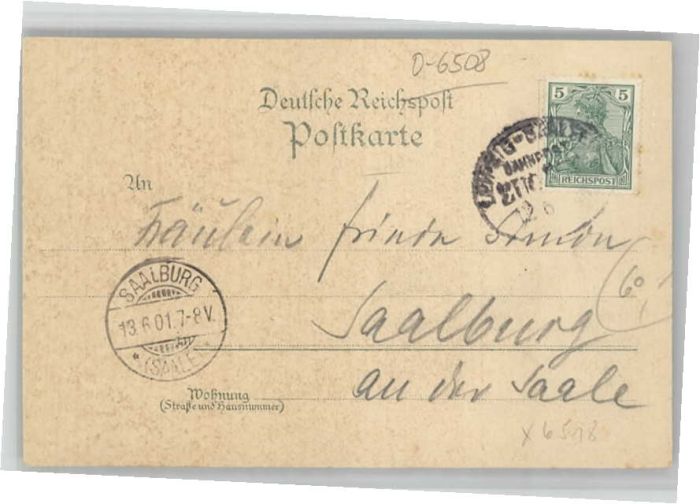 D-6508
Deutsche Reichspost
Postkarte
5 5
REICHSPOST
BAHNPOST
An
Fräulein Frieda
SAALBURG
13.6.01.7-8V.
*(SAALE)*
Saalburg
an der Saale
Wohnung
(Straße und Hausnummer)
x 6518